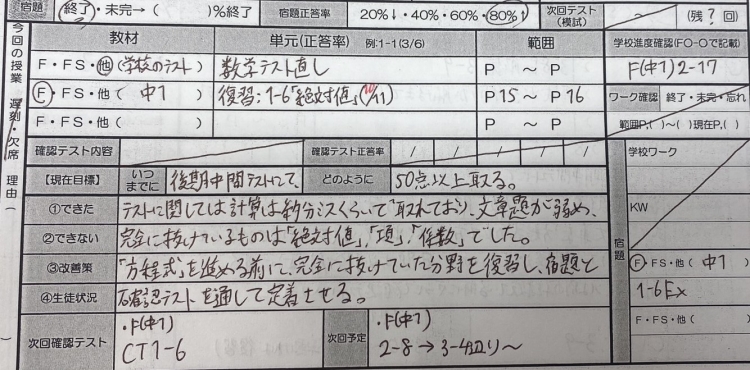 宿題 終了・未完→( )%終了 宿題正答率 20%↓・40%・60%・80%↑ 次回テスト(模試) ~ (残?回)
今回の授業 遅刻・欠席 理由( )
教材 単元(正答率) 例:1-1(3/6) 範囲 学校進度確認(FO-Oで記載)
F・FS・他(学校のテスト) 数学テスト直し P ~ P F(中1)2-17
F・FS・他( 中1 ) 復習:1-6「絶対値」(10/11) P15 ~ P16 ワーク確認 終了・未完・忘れ
F・FS・他( ) P ~ P 範囲P.( )~( )現在P.( )
確認テスト内容 確認テスト正答率 / / / / / 学校ワーク
【現在目標】 いつまでに 後期中間テストにて、 どのように 50点以上取る。
①できた テストに関しては計算は約分ミスくらいで取れており、文章題が弱め、 KW
②できない 完全に抜けているものは「絶対値」,「項」,「係数」でした。
③改善策 「方程式」を進める前に、完全に抜けていた分野を復習し、宿題と 宿題 F・FS・他( 中1 )
④生徒状況 確認テストを通して定着させる。 1-6Ex
次回確認テスト ・F(中1) 次回予定 ・F(中1) F・FS・他( )
CT1-6 2-8→3-4辺り~